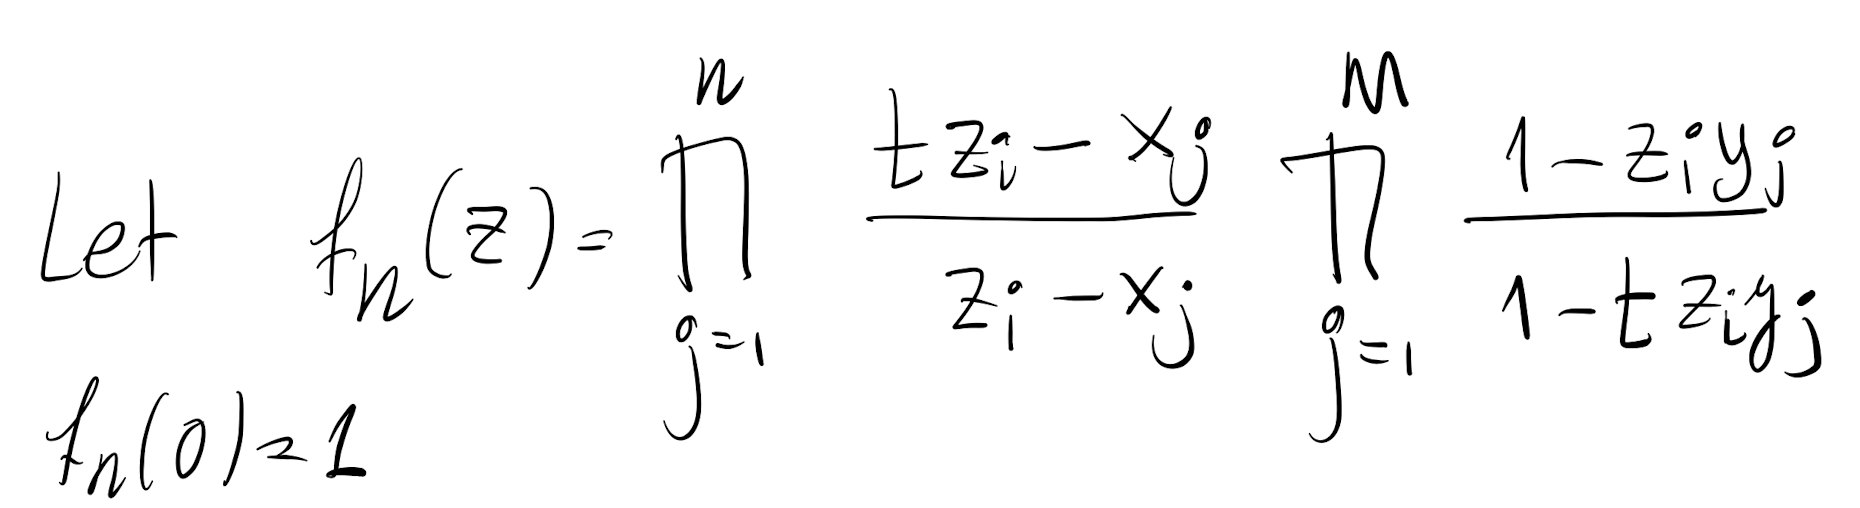 Let fₙ(z) = ∏_{j=1}^{n} (t zᵢ − xⱼ)/(zᵢ − xⱼ) ∏_{j=1}^{M} (1 − zᵢyⱼ)/(1 − t zᵢyⱼ)
fₙ(0) = 1